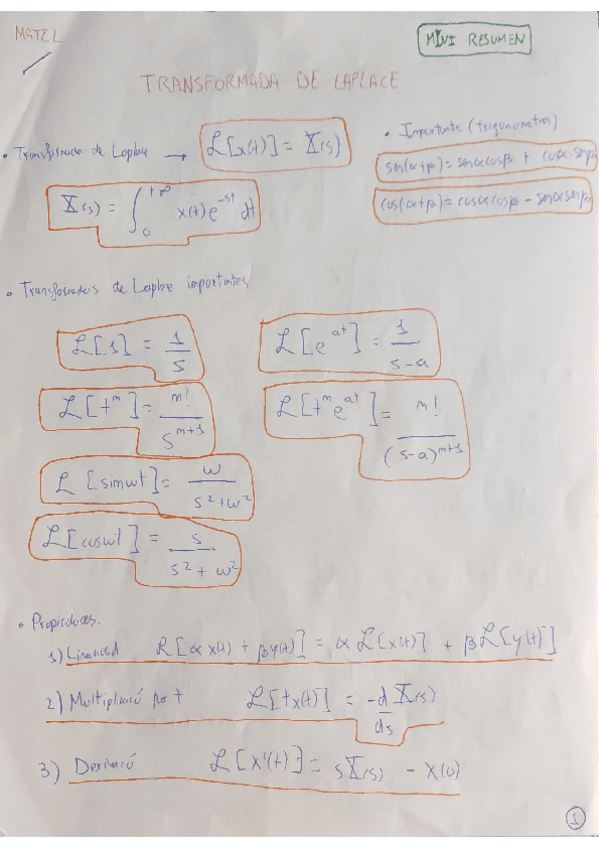 MATE2
MINI RESUMEN
TRANSFORMADA DE LAPLACE
• Transformada de Laplace → L[x(t)] = X(s)
X(s) = ∫₀^{+∞} x(t)e^{-st} dt
• Importante (trigonometria)
sen(α+β) = senαcosβ + cosα·senβ
cos(α+β) = cosαcosβ - senαsenβ
• Transformadas de Laplace importantes
L[1] = 1/s
L[e^{at}] = 1/(s-a)
L[t^m] = m!/s^{m+1}
L[t^m e^{at}] = m!/(s-a)^{m+1}
L[sinwt] = w/(s²+w²)
L[coswt] = s/(s²+w²)
• Propiedades.
1) Linealidad L[αx(t) + βy(t)] = αL[x(t)] + βL[y(t)]
2) Multiplicació por t L[tx(t)] = -d/ds X(s)
3) Derivació L[x'(t)] = sX(s) - x(0)
1